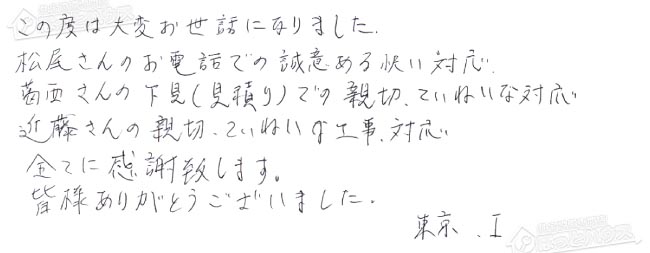 この度は大変お世話になりました.
松尾さんのお電話での誠意ある快い対応.
葛西さんの下見(見積り)での親切、ていねいな対応
近藤さんの親切、ていねいな工事、対応
全てに感謝致します。
皆様ありがとうございました.
東京 . I